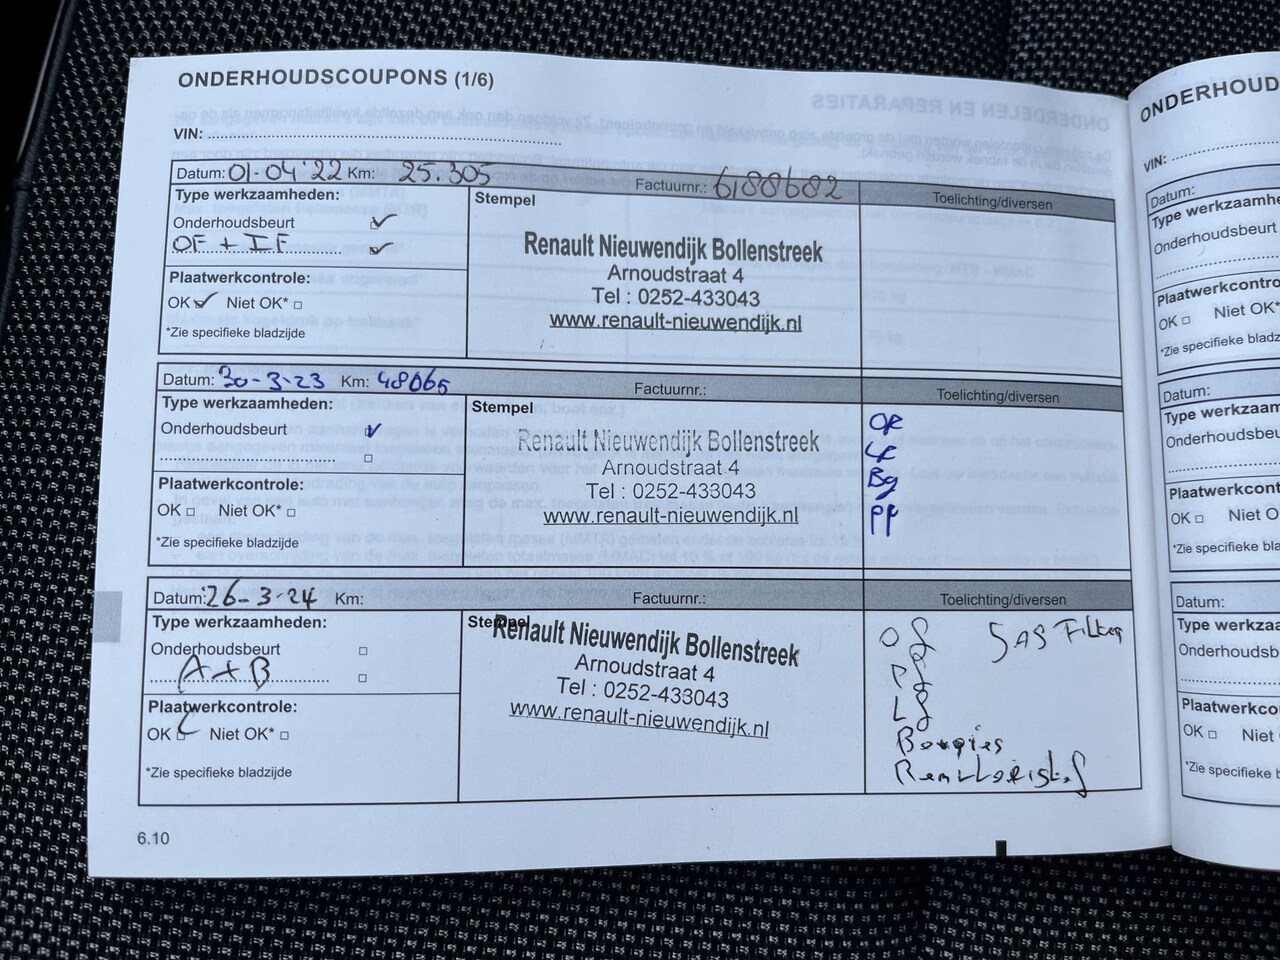 ONDERHOUDSCOUPONS (1/6)
VIN:
Datum: 01-04'22 Km: 25.305 Factuurnr.: 6188682 Toelichting/diversen
Type werkzaamheden:
Stempel
Onderhoudsbeurt
OF + IF
Plaatwerkcontrole:
OK Niet OK*
*Zie specifieke bladzijde
Renault Nieuwendijk Bollenstreek
Arnoudstraat 4
Tel : 0252-433043
www.renault-nieuwendijk.nl
Datum: 30-3-23 Km: 48065 Factuurnr.: Toelichting/diversen
Type werkzaamheden:
Stempel
Onderhoudsbeurt
Plaatwerkcontrole:
OK Niet OK*
*Zie specifieke bladzijde
Renault Nieuwendijk Bollenstreek
Arnoudstraat 4
Tel : 0252-433043
www.renault-nieuwendijk.nl
OF
LF
Bg
PF
Datum: 26-3-24 Km: Factuurnr.: Toelichting/diversen
Type werkzaamheden:
Stempel
Onderhoudsbeurt
A+B
Plaatwerkcontrole:
OK Niet OK*
*Zie specifieke bladzijde
Renault Nieuwendijk Bollenstreek
Arnoudstraat 4
Tel : 0252-433043
www.renault-nieuwendijk.nl
Of
Pf
Lf
Bougies
Remvloeistof
Filter
6.10
ONDERHOUD
VIN:
Datum:
Type werkzaamhe
Onderhoudsbeurt
Plaatwerkcontro
OK Niet OK*
*Zie specifieke bladz
Datum:
Type werkzaam
Onderhoudsbeu
Plaatwerkcont
OK Niet O
*Zie specifieke b
Datum:
Type werkza
Onderhoudsb
Plaatwerkco
OK Niet
*Zie specifieke b